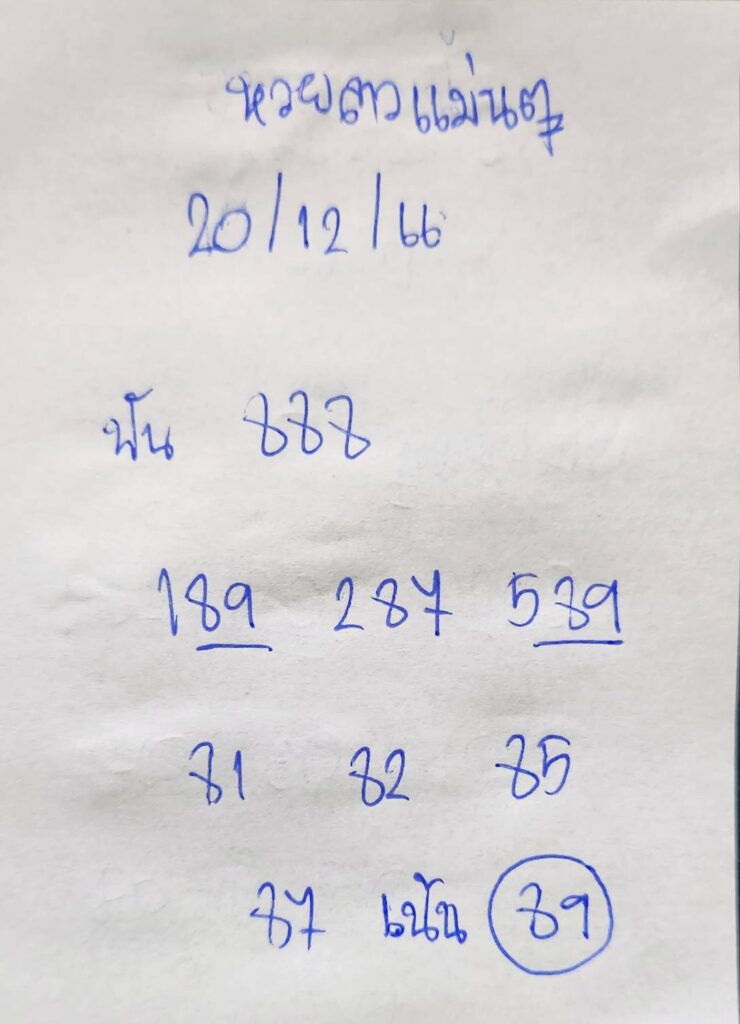 หวยลาวแม่นตุ
20/12/66
ฟัน 888
189 287 589
81 82 85
87 เน้น 89